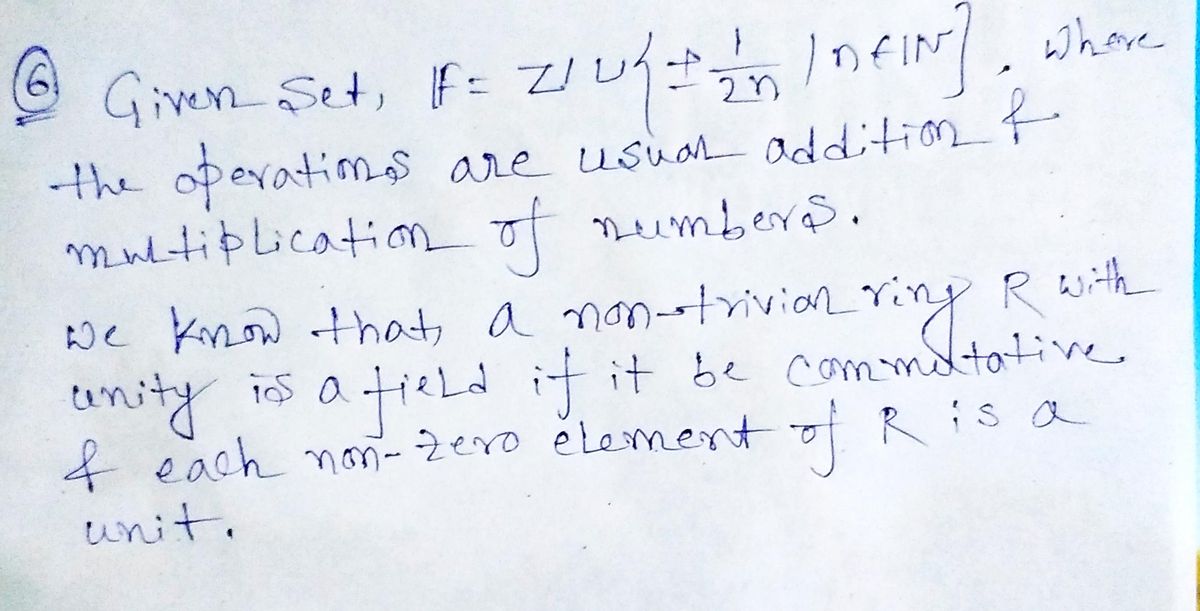 ⑥ Given set, F = Z ∪ {± 1/2n / n ∈ IN}, where
the operations are usual addition &
multiplication of numbers.
we know that, a non-trivial ring R with
unity is a field if it be commutative
& each non-zero element of R is a
unit.